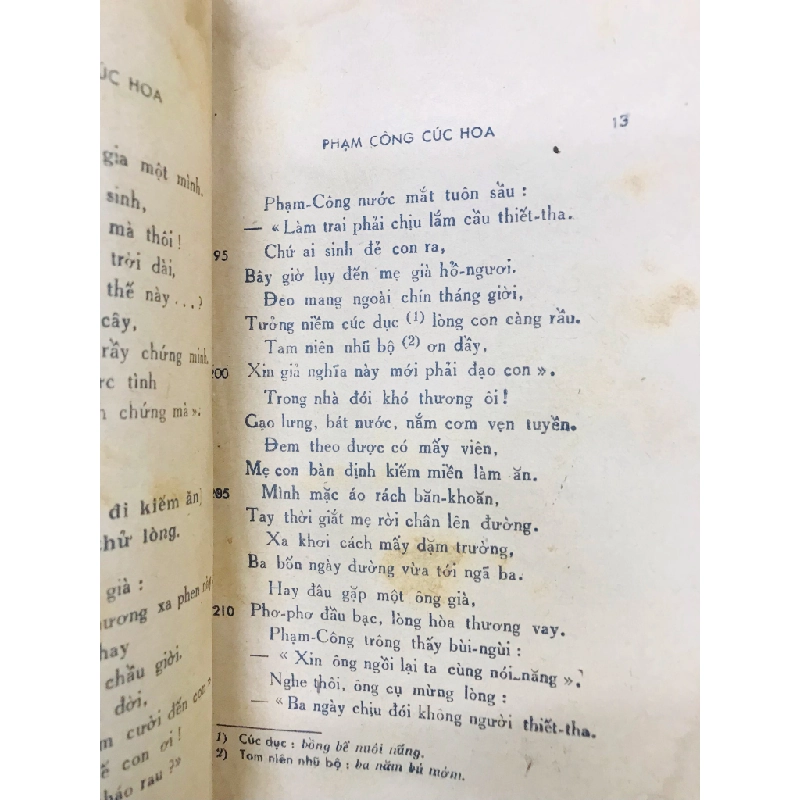 ÚC HOA
gia một mình.
sinh,
mà thôi !
trời dài,
thế này...?
cây,
rầy chứng minh.
ực tình
chứng mà ».
đi kiếm ăn)
hử lòng.
già :
ương xa phen
hay
chầu giời.
đời,
cười đến con
con ơi !
háo rau ?»
PHẠM CÔNG CÚC HOA 13
Phạm-Công nước mắt tuôn sầu :
— « Làm trai phải chịu lắm cầu thiết-tha.
95 Chứ ai sinh đẻ con ra,
Bây giờ lụy đến mẹ già hồ-ngươi.
Đèo mang ngoài chín tháng giời,
Tưởng niềm cúc dục (1) lòng con càng rầu.
Tam niên nhũ bộ (2) ơn dầy,
200 Xin giả nghĩa này mới phải đạo con ».
Trong nhà đói khó thương ôi !
Gạo lưng, bát nước, nắm cơm vẹn tuyền.
Đem theo được có mấy viên,
Mẹ con bàn định kiếm miền làm ăn.
205 Mình mặc áo rách băn-khoăn,
Tay thời giắt mẹ rời chân lên đường.
Xa khơi cách mấy dặm trường,
Ba bốn ngày đường vừa tới ngã ba.
Hay đâu gặp một ông già,
210 Phơ-phơ đầu bạc, lòng hòa thương vay.
Phạm-Công trông thấy bùi-ngùi :
— « Xin ông ngồi lại ta cùng nói-năng ».
Nghe thôi, ông cụ mừng lòng :
— « Ba ngày chịu đói không người thiết-tha.
1) Cúc dục : bồng bế nuôi nấng.
2) Tam niên nhũ bộ : ba năm bú mớm.